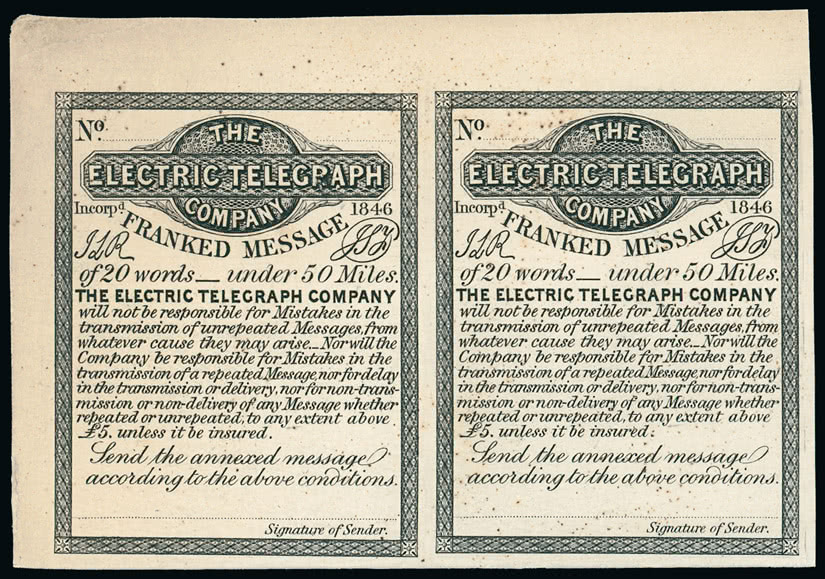 No.
THE
ELECTRIC TELEGRAPH
COMPANY
Incorpd. 1846
FRANKED MESSAGE
of 20 words — under 50 Miles.
THE ELECTRIC TELEGRAPH COMPANY
will not be responsible for Mistakes in the
transmission of unrepeated Messages, from
whatever cause they may arise._Nor will the
Company be responsible for Mistakes in the
transmission of a repeated Message, nor for delay
in the transmission or delivery, nor for non-trans-
mission or non-delivery of any Message whether
repeated or unrepeated, to any extent above
£5. unless it be insured.
Send the annexed message
according to the above conditions.
Signature of Sender.
No.
THE
ELECTRIC TELEGRAPH
COMPANY
Incorpd. 1846
FRANKED MESSAGE
of 20 words — under 50 Miles.
THE ELECTRIC TELEGRAPH COMPANY
will not be responsible for Mistakes in the
transmission of unrepeated Messages, from
whatever cause they may arise._Nor will the
Company be responsible for Mistakes in the
transmission of a repeated Message, nor for delay
in the transmission or delivery, nor for non-trans-
mission or non-delivery of any Message whether
repeated or unrepeated, to any extent above
£5. unless it be insured.
Send the annexed message
according to the above conditions.
Signature of Sender.